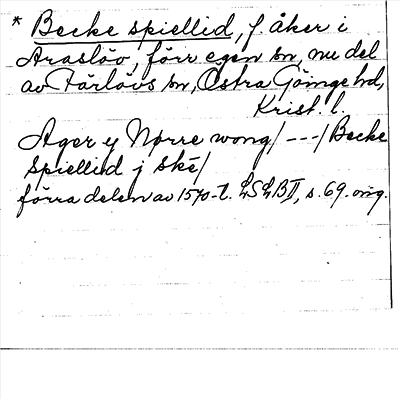 * Becke spiellid, f. åker i
Araslöv, förr egen sn, nu del
av Färlövs sn, Östra Göinge hd,
Krist. l.
Ager y Nørre wong/---/Becke
Spiellid j ské/
förra delen av 1570-t. LSLB II, s. 69. orig.